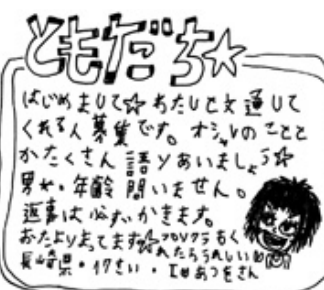 ともだち☆
はじめまして☆ あたしと文通して
くれる人募集です。オシャレのこと
かたくさん語りあいましょう☆
男女・年齢問いません。
返事は必ずかきます。
おたよりまってます☆プロフクラもく
れたらうれしい
長崎県・17さい・